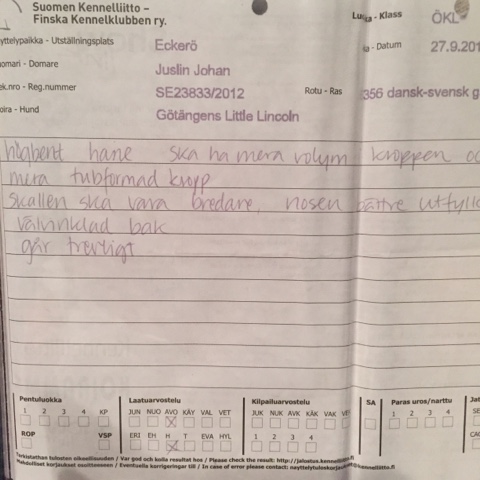 Suomen Kennelliitto –
Finska Kennelklubben ry.
Luokka - Klass ÖKL
yttelypaikka - Utställningsplats Eckerö
ka - Datum 27.9.201
omari - Domare Juslin Johan
ek.nro - Reg.nummer SE23833/2012
Rotu - Ras 356 dansk-svensk g
oira - Hund Götängens Little Lincoln
högbent hane ska ha mera volym kroppen oc
mera tubformad kropp
skallen ska vara bredare, nosen bättre utfyllд
välvinklad bak
går trevligt
Pentuluokka
1 2 3 4 KP
ROP VSP
Laatuarvostelu
JUN NUO AVO KÄY VAL VET
ERI EH H T EVA HYL
Kilpailuarvostelu
JUK NUK AVK KÄK VAK VE
1 2 3 4
SA
Paras uros/narttu
1 2 3 4
Jat
SE
CAC
Tarkistathan tulosten oikeellisuuden / Var god och kolla resultat hos / Please check the result: http://jalostus.kennelliitto.fi
Mahdolliset korjaukset osoitteeseen / Eventuella korrigeringar till / In case of error please contact: nayttelytuloskorjaukset@kennelliitto.fi